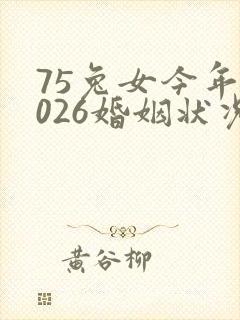 75兔女今年
026婚姻状况
黄谷柳